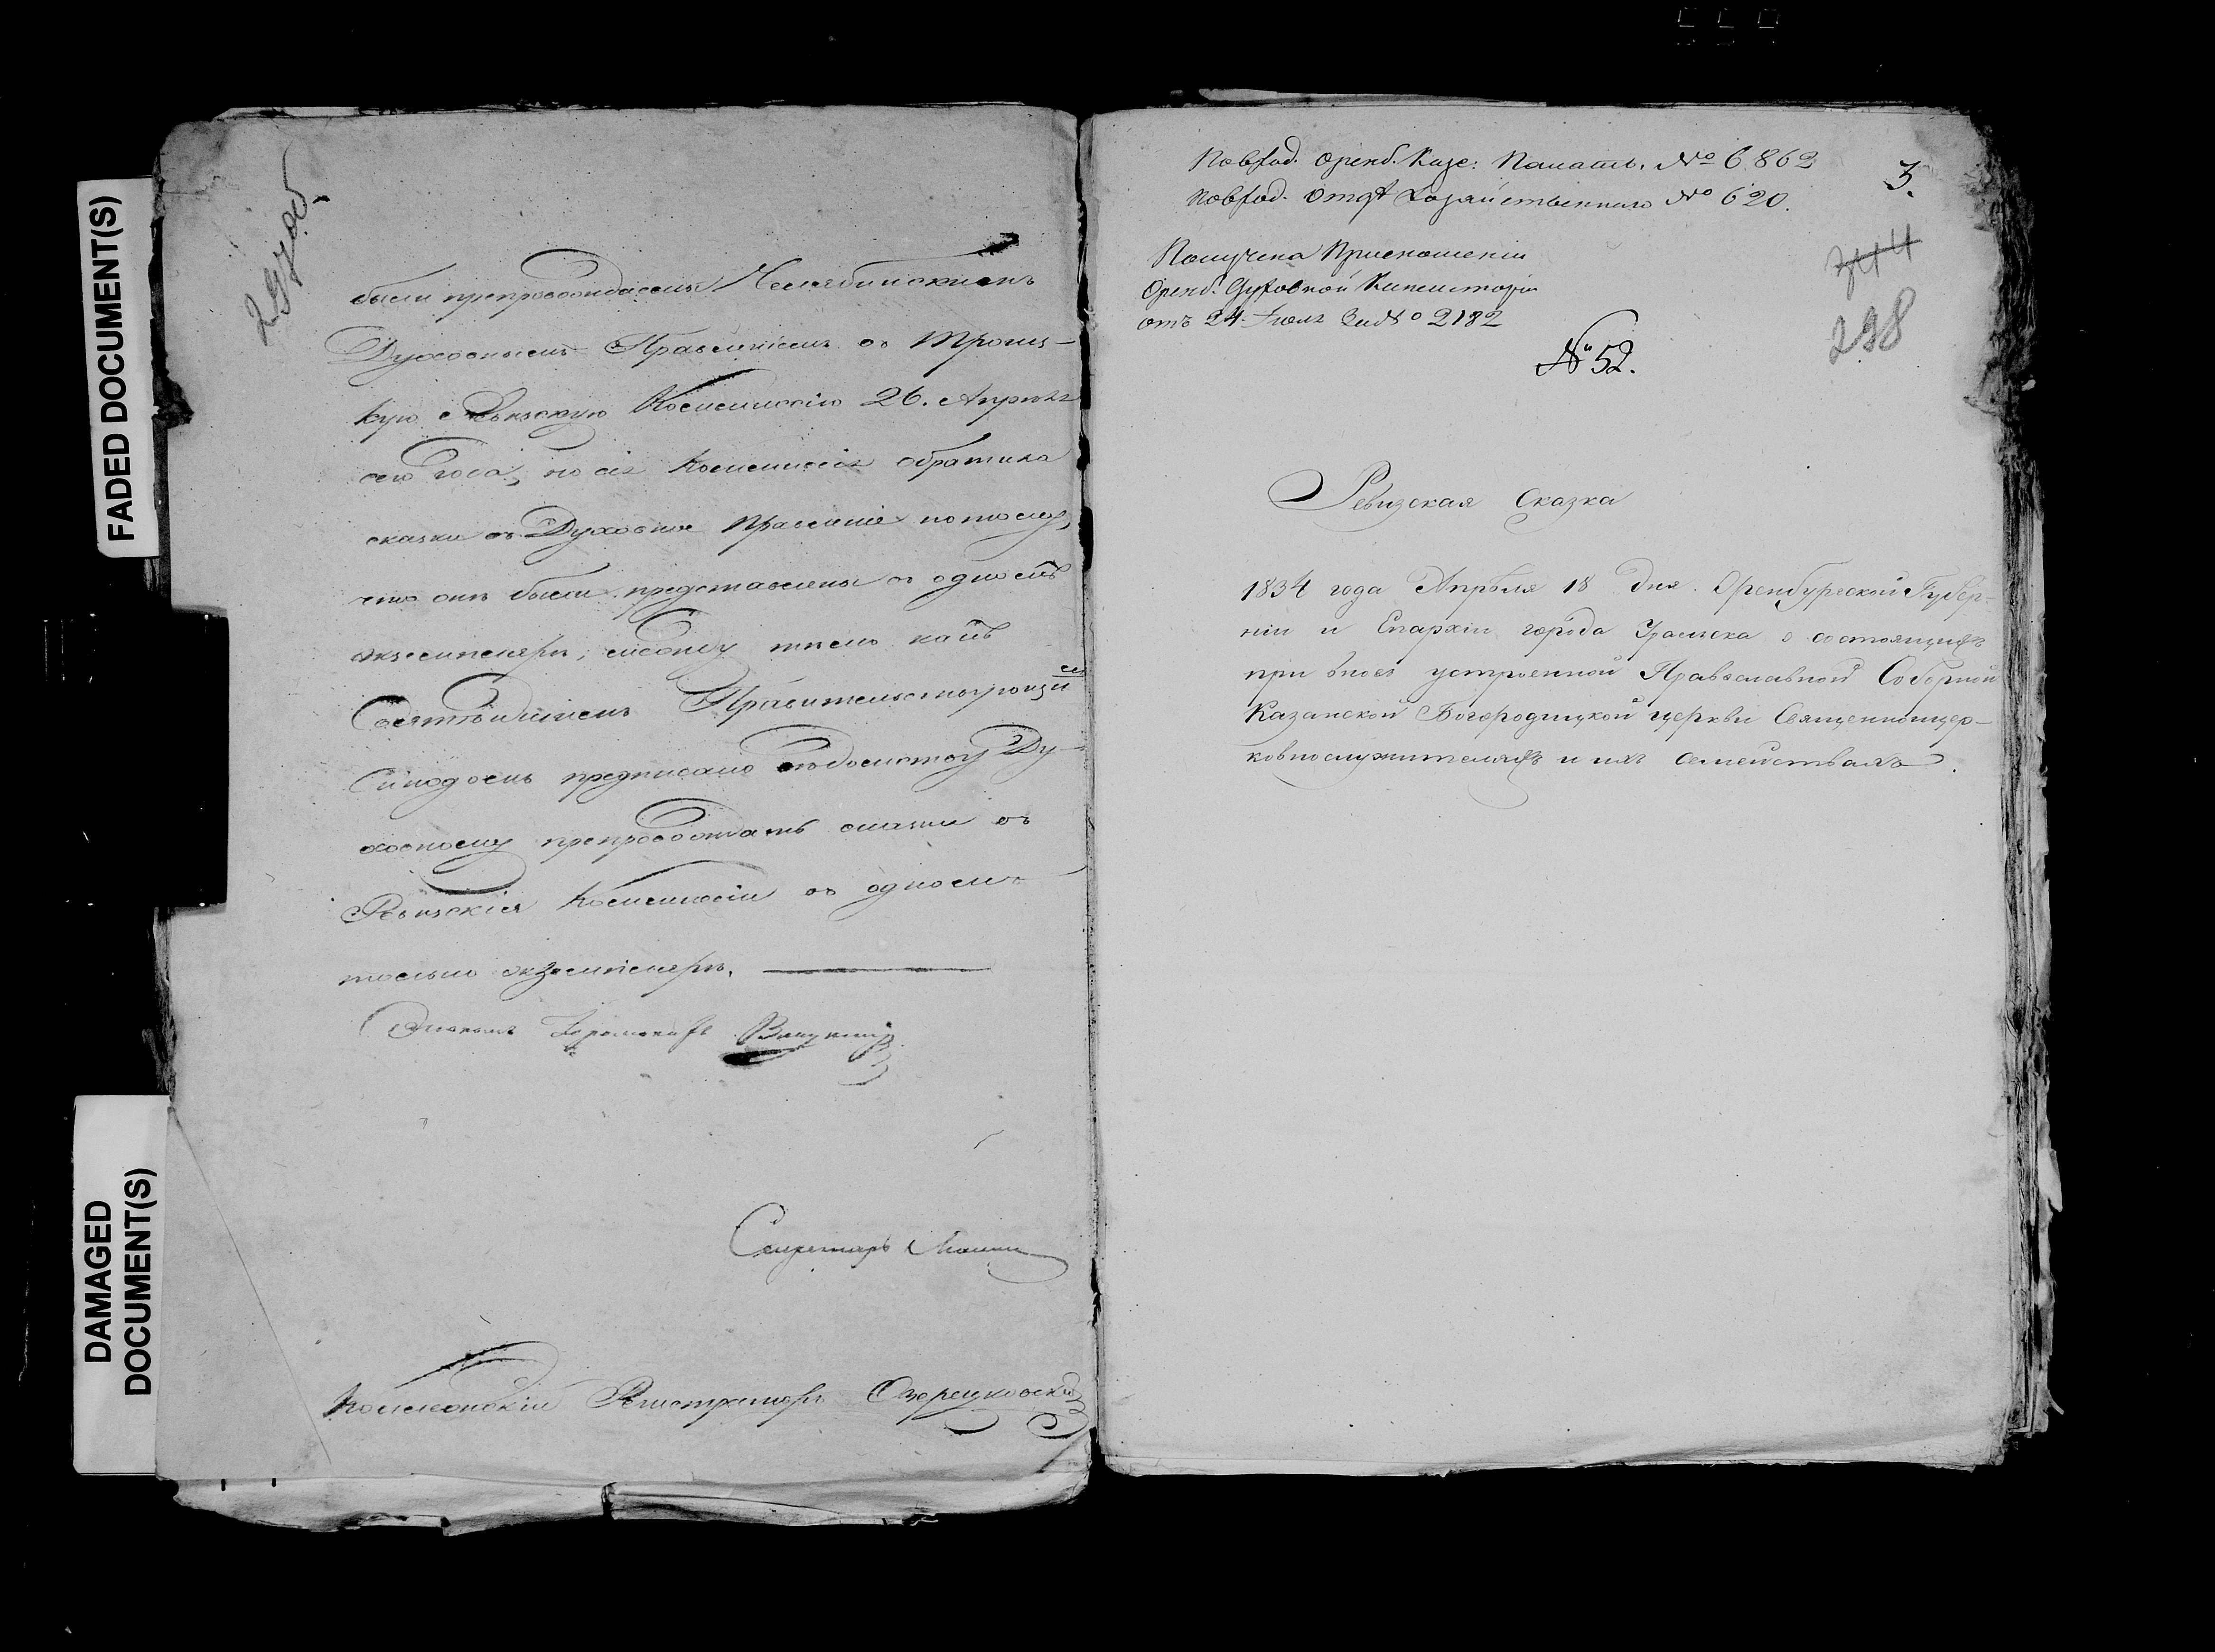 FADED DOCUMENT(S)
DAMAGED
DOCUMENT(S)
297 об.
были препровождаемы Челябинскимъ
Духовнымъ Правленіемъ въ Троиц-
кую Ревизскую Коммиссію 26. Апрѣля
сего года, но сія Коммиссія обратила
сказки въ Духовное Правленіе потому,
что онѣ были представлены въ одномъ
экземплярѣ, между тѣмъ какъ
Святѣйшимъ Правительствующимъ
Синодомъ предписано вѣдомству Ду-
ховному препровождать сказки въ
Ревизскія Коммиссіи въ одномъ
только экземплярѣ.
Секретарь
Коллежскій Регистраторъ Озерецковскій
Повход. Оренб. Казе: Палаты. № 6862
Повход. Отдѣ Хозяйственнаго № 620.
3.
Получена При сношеніи
Оренб. Духовной Консисторіи
отъ 24. Іюля За № 2182
344
298
№ 52.
Ревизская Сказка
1834 года Апрѣля 18 дня. Оренбургской Губер-
ніи и Епархіи города Уральска о состоящихъ
при вновь устроенной Православной Соборной
Казанской Богородицкой церкви Священноцер-
ковнослужителяхъ и ихъ семействахъ.